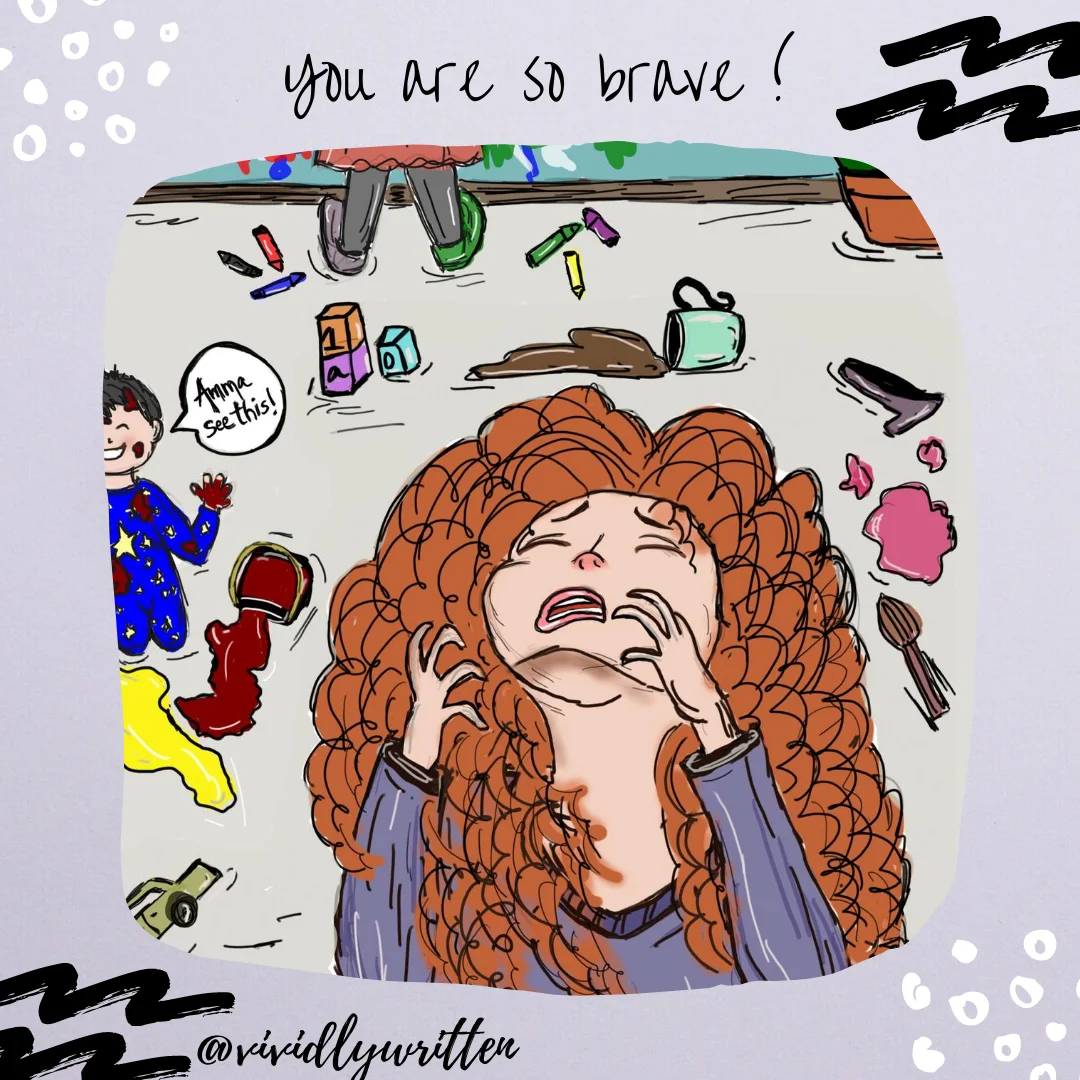 you are so brave !
Amma
see this!
1
a
0
@vividlywritten